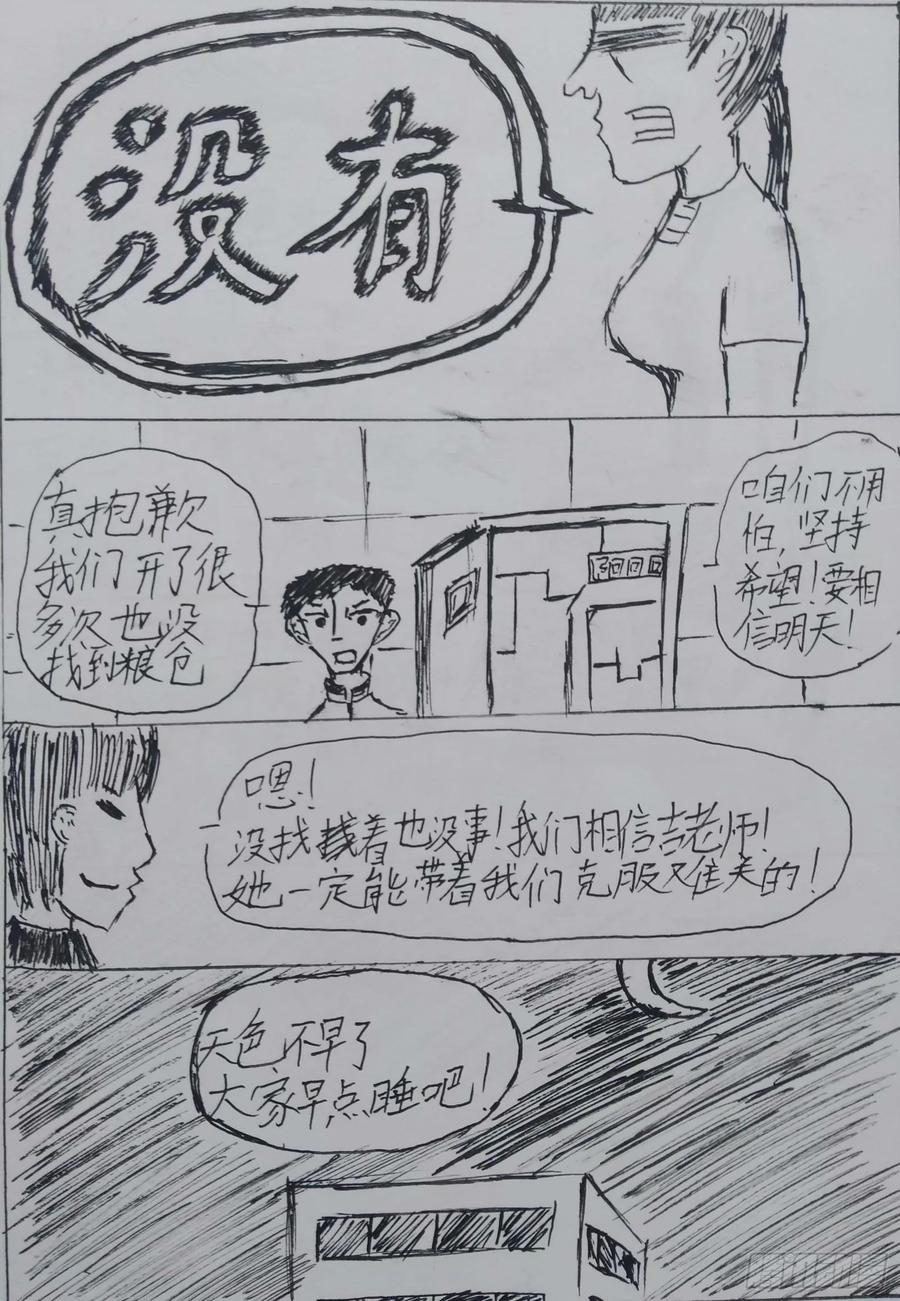 没有
真抱歉
我们开了很
多次也没
找到粮仓
咱们不用
怕，坚持
希望！要相
信明天！
嗯！
没找着也没事！我们相信吉老师！
她一定能带着我们克服难关的！
天色不早了
大家早点睡吧！